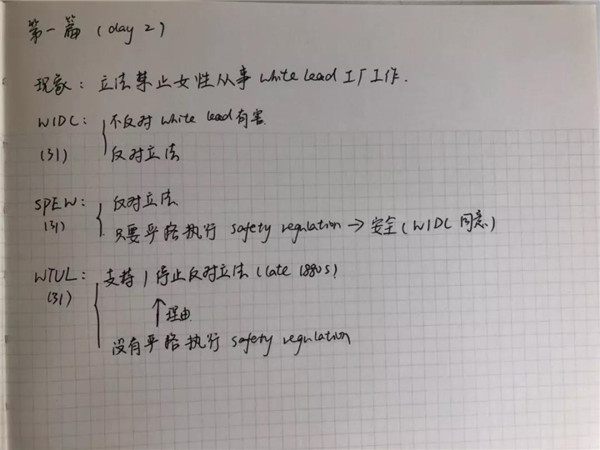 第一篇 (day 2)
现象: 立法禁止女性从事 white lead 工厂工作.
WIDC: 不反对 white lead 有害
(31) 反对立法
SPEW: 反对立法
(31) 只要严格执行 safety regulation → 安全 (WIDC 同意)
WTUL: 支持 / 停止反对立法 (late 1880s)
(31) ↑理由
没有严格执行 safety regulation